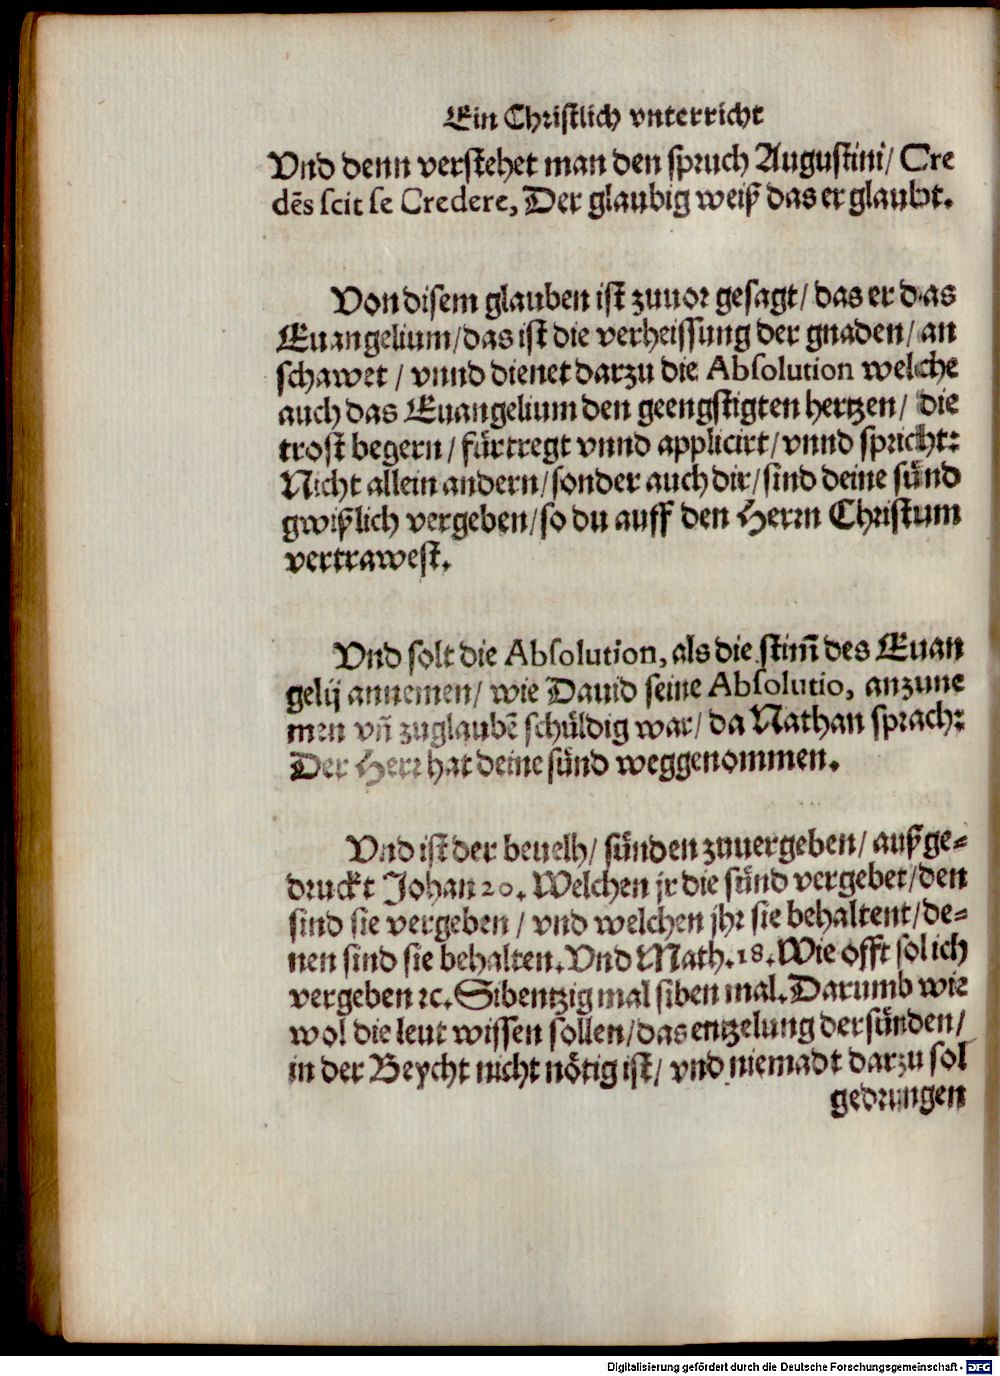 Ein Christlich vnterricht
Vnd denn verstehet man den spruch Augustini/ Cre
dẽs scit se Credere, Der glaubig weiß das er glaubt.
Von disem glauben ist zuuor gesagt/ das er das
Euangelium/das ist die verheissung der gnaden/ an
schawet / vnnd dienet darzu die Absolution welche
auch das Euangelium den geengstigten hertzen/ die
trost begern/ fürtregt vnnd applicirt/ vnnd spricht:
Nicht allein andern/sonder auch dir/ sind deine sünd
gwißlich vergeben/so du auff den Herrn Christum
vertrawest.
Vnd solt die Absolution, als die stim̃ des Euan
gelij annemen/ wie Dauid seine Absolutio, anzune
men vñ zuglaubẽ schüldig war/ da Nathan sprach:
Der Herr hat deine sünd weggenommen.
Vnd ist der beuelh/ sünden zuuergeben/ außge-
druckt Johan 20. Welchen jr die sünd vergebet/den
sind sie vergeben / vnd welchen jhr sie behaltent/de-
nen sind sie behalten. Vnd Math. 18. Wie offt sol ich
vergeben ꝛc. Sibentzig mal siben mal. Darumb wie
wol die leut wissen sollen/das entzelung der sünden/
in der Beycht nicht nötig ist/ vnd niemadt darzu sol
gedrungen
Digitalisierung gefördert durch die Deutsche Forschungsgemeinschaft - DFG